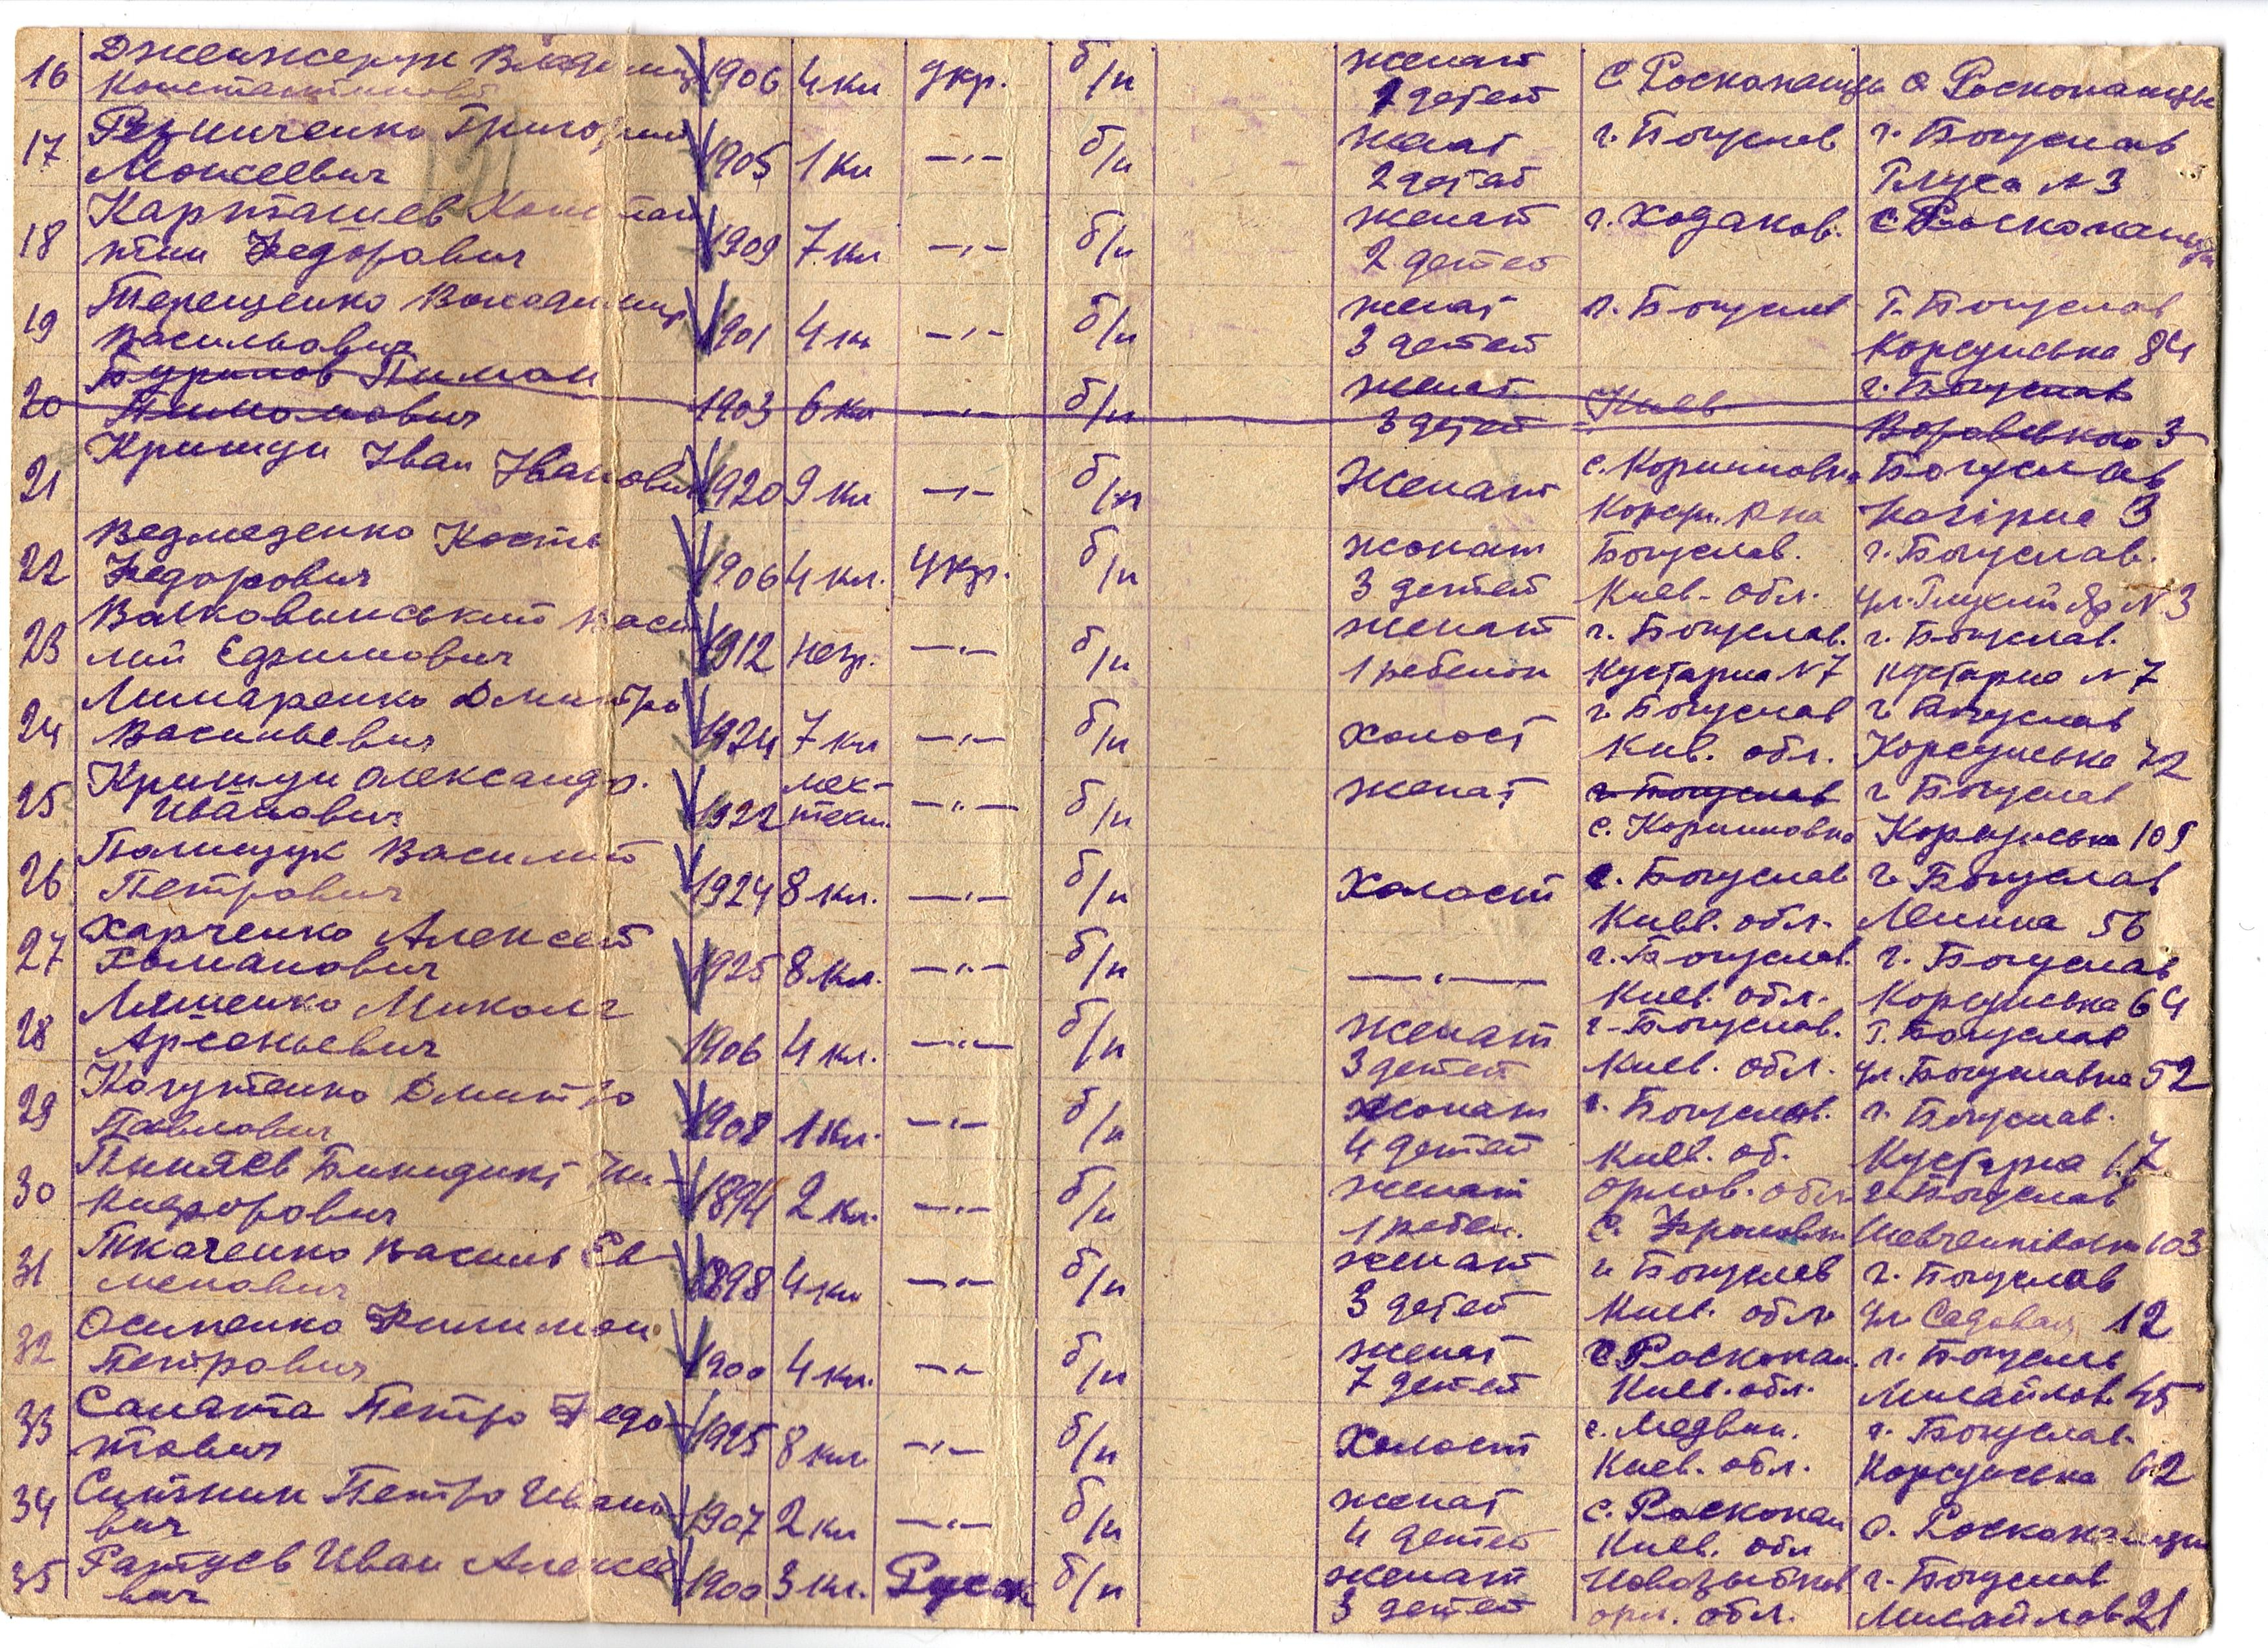 16 Дженжерук Владимир 1906 4 кл укр. б/п женат с Росконанцы с Росконанцы
Константинович 2 детей
17 Резниченко Григорий 1905 1 кл —"— б/п женат г. Богуслав г. Богуслав
Моисеевич 2 детей № 3
18 Карташев Констан 1909 7 кл —"— б/п женат г. Ходаков. с Росконанцы
тин Федорович 2 детей
19 Терещенко Володимир 1901 4 кл —"— б/п женат г. Богуслав Г. Богуслав
Васильович 3 детей Корсунська 84
20 Пимон 1903 6 кл —"— б/п женат Киев г. Богуслав
Пимонович 3 детей 3
21 Крищун Іван Іванович 1920 9 кл —"— б/п Женат с. Корниловка Богуслав
Корсун. р на 3
22 Ведмеденко Кость 1906 4 кл. Укр. б/п жонат Богуслав. г. Богуслав.
Федорович 3 детей Киев. обл. ул. Глухий Яр № 3
23 Валковинський Васи 1912 негр. —"— б/п женат г. Богуслав. г. Богуслав.
лий Ефимович 1 ребенок Кустарна № 7 Кустарна № 7
24 Лимаренко Дмитро 1924 7 кл —"— б/п холост г. Богуслав г. Богуслав
Васильевич Кив. обл. Корсунська 72
25 Крищун Олександр. 1922 мех- —"— б/п женат г. Богуслав г. Богуслав
Иванович техн. с. Корниловка Корсунська 109
26 Полищук Василий 1924 8 кл. —"— б/п Холост г. Богуслав г. Богуслав
Петрович Киев. обл. Ленина 56
27 Харченко Алексей 1925 8 кл. —"— б/п —"— г. Богуслав. г. Богуслав
Романович Киев. обл. Корсунська 64
28 Ляшенко Микола 1906 4 кл. —"— б/п Женат г. Богуслав. Г. Богуслав
Арсеньевич 3 детей Киев. обл. ул. Богуславка 52
29 Когутенко Дмитро 1908 1 кл. —"— б/п жонат г. Богуслав. г. Богуслав.
Павлович 4 детей Киев. об. Кустарна 17
30 Пиняев Бинидикт Ни- 1894 2 кл. —"— б/п женат Орлов. обл. г. Богуслав
кифорович 1 ребен. с. Шевченківська 103
31 Ткаченко Василь Ев- 1898 4 кл —"— б/п женат г. Богуслав г. Богуслав
менович 3 детей Киев. обл. ул Садовая 12
32 Осипенко Филимон 1900 4 кл. —"— б/п женат с. Росконан. г. Богуслав
Петрович 7 детей Киев. обл. Мисайлов. 45
33 Саната Петро Федо- 1925 8 кл. —"— б/п Холост с. Медвин. г. Богуслав.
тович Киев. обл. Корсунська 62
34 Ситник Петро Ивано 1907 2 кл —"— б/п женат с. Росконан с. Росконанцы
вич 4 детей Киев. обл
35 Ратуев Иван Алексее 1900 3 кл. Руск б/п женат Новозыбков г. Богуслав
вич 3 детей орл. обл. Мисайлов 21